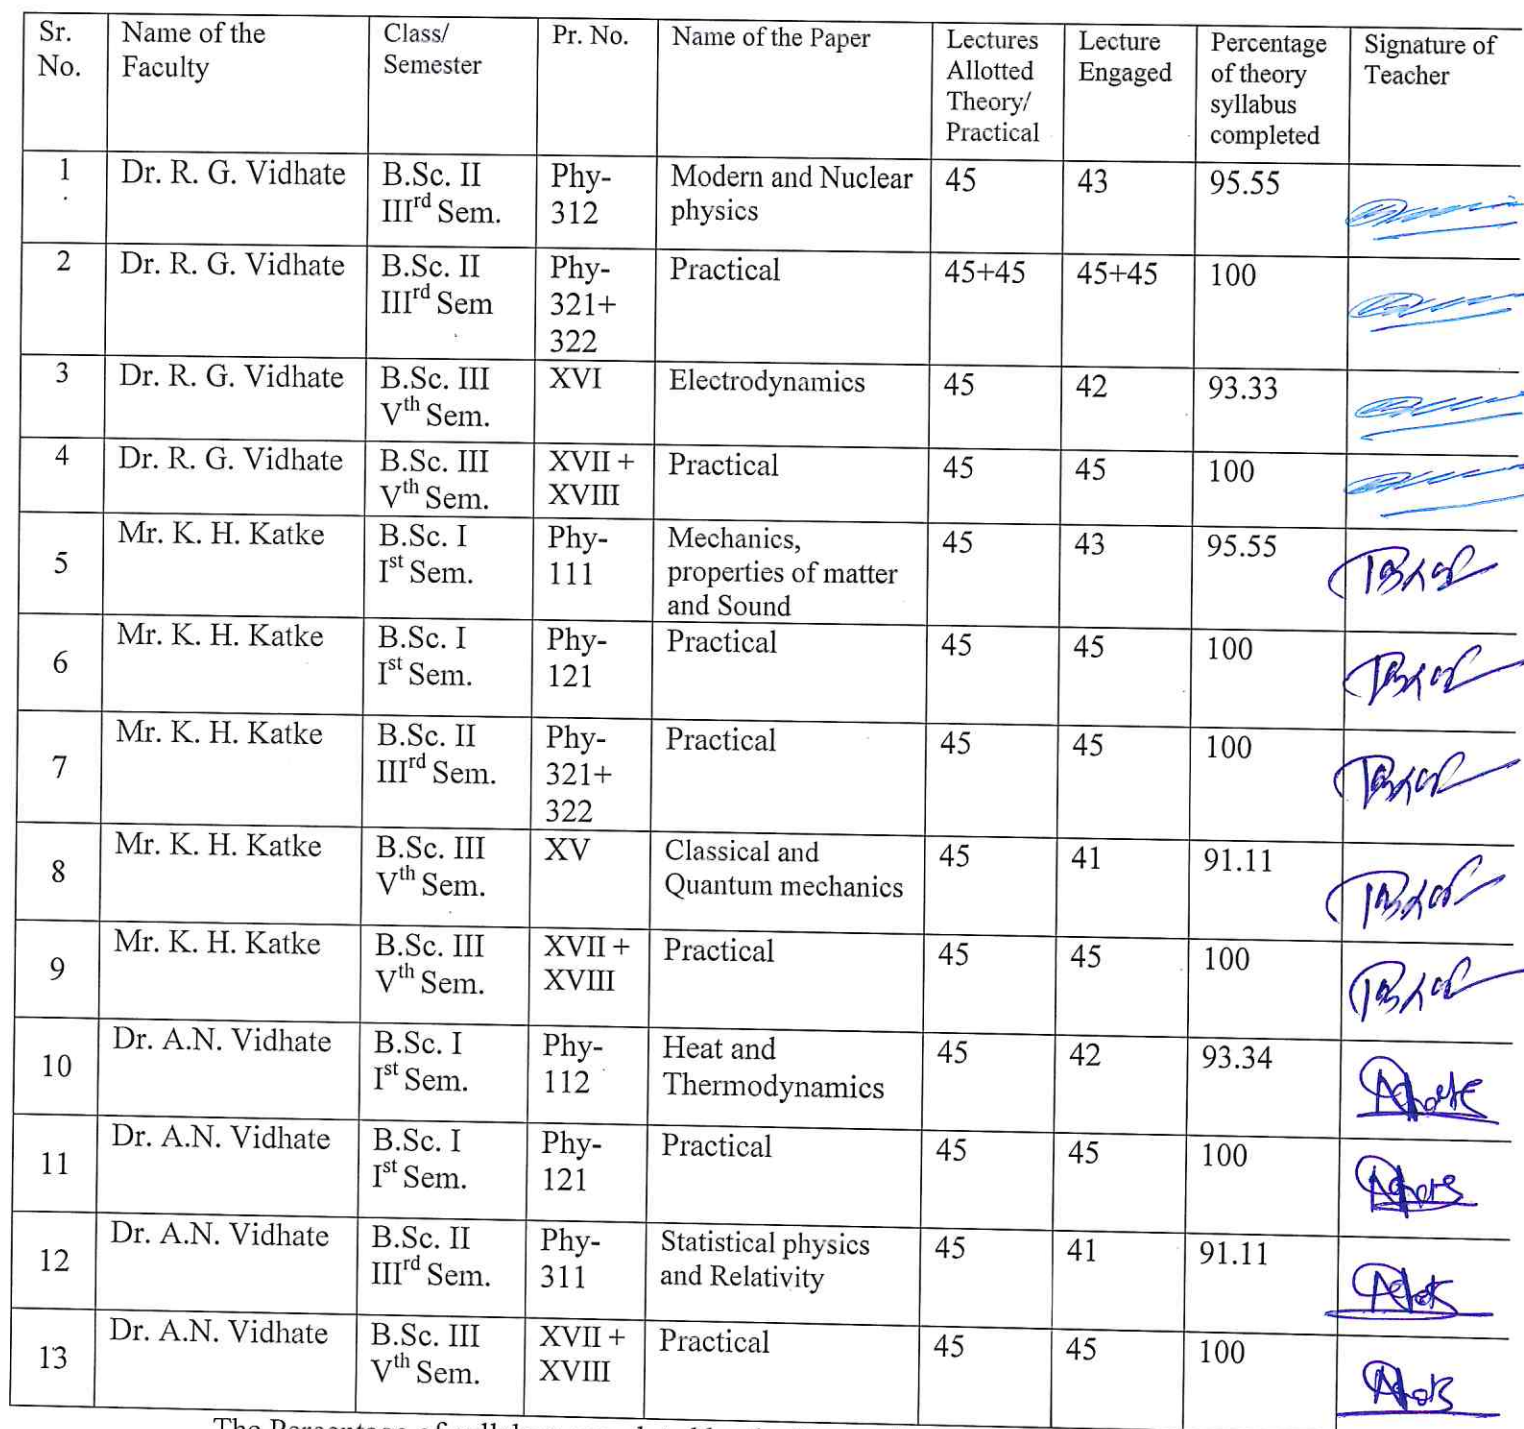 Sr. No. | Name of the Faculty | Class/ Semester | Pr. No. | Name of the Paper | Lectures Allotted Theory/ Practical | Lecture Engaged | Percentage of theory syllabus completed | Signature of Teacher
1 | Dr. R. G. Vidhate | B.Sc. II IIIrd Sem. | Phy-312 | Modern and Nuclear physics | 45 | 43 | 95.55
2 | Dr. R. G. Vidhate | B.Sc. II IIIrd Sem | Phy-321+ 322 | Practical | 45+45 | 45+45 | 100
3 | Dr. R. G. Vidhate | B.Sc. III Vth Sem. | XVI | Electrodynamics | 45 | 42 | 93.33
4 | Dr. R. G. Vidhate | B.Sc. III Vth Sem. | XVII + XVIII | Practical | 45 | 45 | 100
5 | Mr. K. H. Katke | B.Sc. I Ist Sem. | Phy-111 | Mechanics, properties of matter and Sound | 45 | 43 | 95.55
6 | Mr. K. H. Katke | B.Sc. I Ist Sem. | Phy-121 | Practical | 45 | 45 | 100
7 | Mr. K. H. Katke | B.Sc. II IIIrd Sem. | Phy-321+ 322 | Practical | 45 | 45 | 100
8 | Mr. K. H. Katke | B.Sc. III Vth Sem. | XV | Classical and Quantum mechanics | 45 | 41 | 91.11
9 | Mr. K. H. Katke | B.Sc. III Vth Sem. | XVII + XVIII | Practical | 45 | 45 | 100
10 | Dr. A.N. Vidhate | B.Sc. I Ist Sem. | Phy-112 | Heat and Thermodynamics | 45 | 42 | 93.34
11 | Dr. A.N. Vidhate | B.Sc. I Ist Sem. | Phy-121 | Practical | 45 | 45 | 100
12 | Dr. A.N. Vidhate | B.Sc. II IIIrd Sem. | Phy-311 | Statistical physics and Relativity | 45 | 41 | 91.11
13 | Dr. A.N. Vidhate | B.Sc. III Vth Sem. | XVII + XVIII | Practical | 45 | 45 | 100